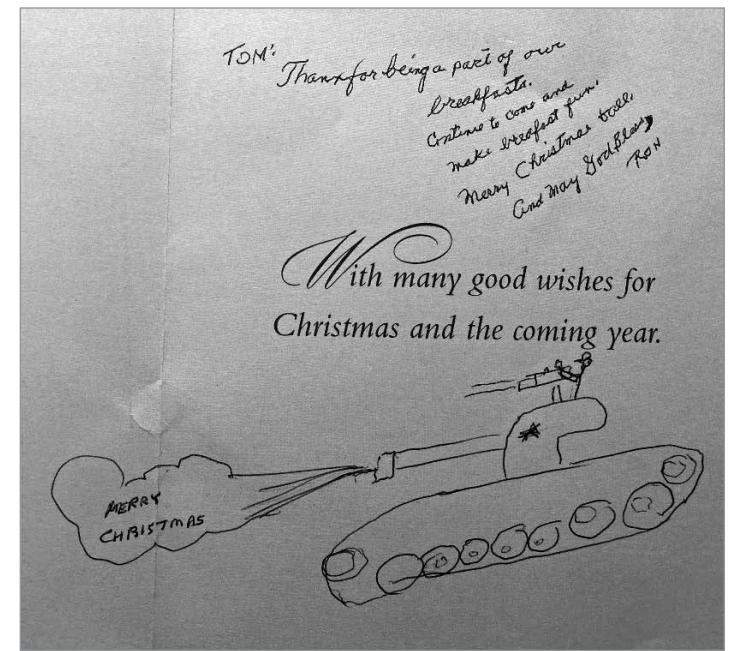 TOM:
Thanx for being a part of our
breakfasts.
Continue to come and
make breafast fun.
Merry Christmas
and May God Bless
RON
With many good wishes for
Christmas and the coming year.
MERRY
CHRISTMAS